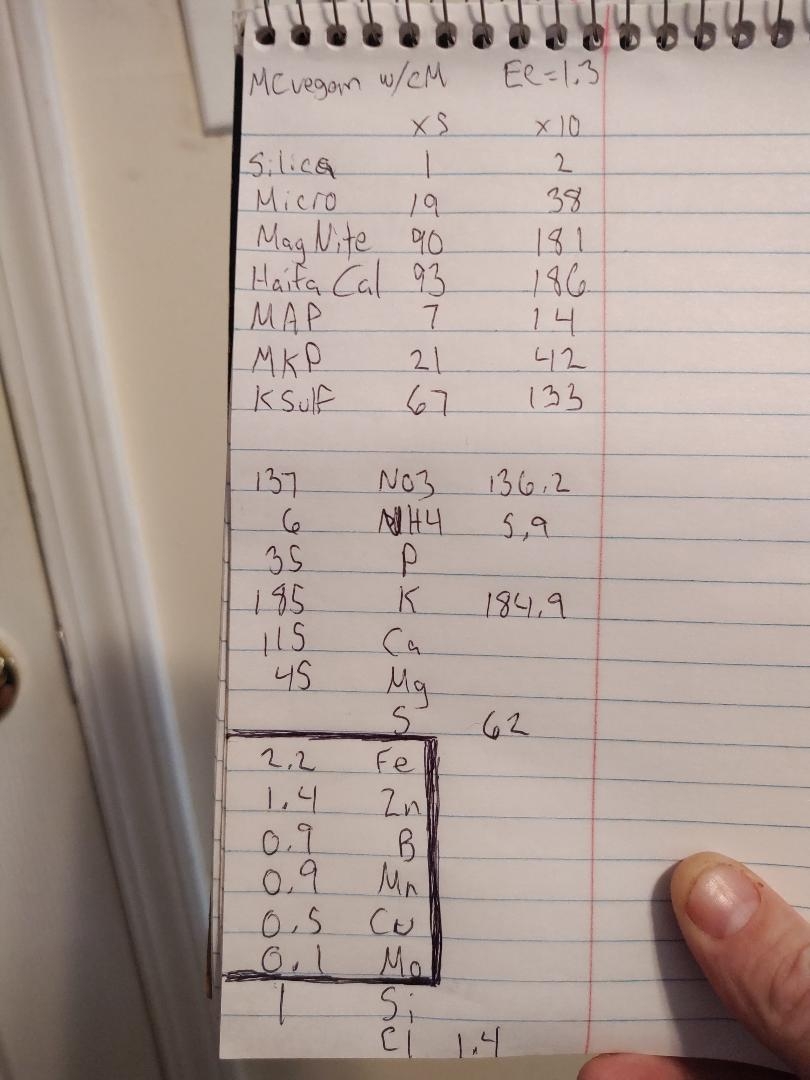 MCvegan w/cM EC=1.3
x5 x10
Silica 1 2
Micro 19 38
Mag Nite 90 181
Haifa Cal 93 186
MAP 7 14
MKP 21 42
K Sulf 67 133
137 No3 136.2
6 NH4 5.9
35 P
185 K 184.9
115 Ca
45 Mg
S 62
2.2 Fe
1.4 Zn
0.9 B
0.9 Mn
0.5 Cu
0.1 Mo
1 Si
Cl 1.4